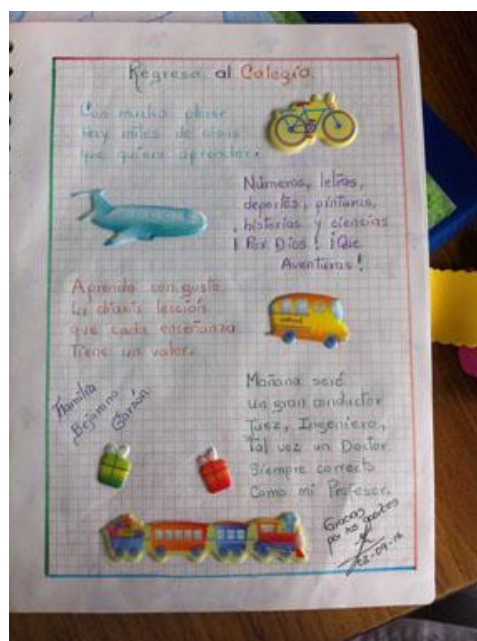 Regreso al Colegio.
Con mucho
Hay miles de cosas
que quiero aprender.
Números, letras,
deportes, pinturas,
historias y ciencias
¡Por Dios! ¡Que
Aventuras!
Aprendo con gusto
La diaria lección
que cada enseñanza
Tiene un valor.
Familia
Bejarano
Garzón.
Mañana seré
un gran conductor
Juez, Ingeniero,
Tal vez un Doctor
Siempre correcto
Como mi Profesor.
Gracias
por tus aportes